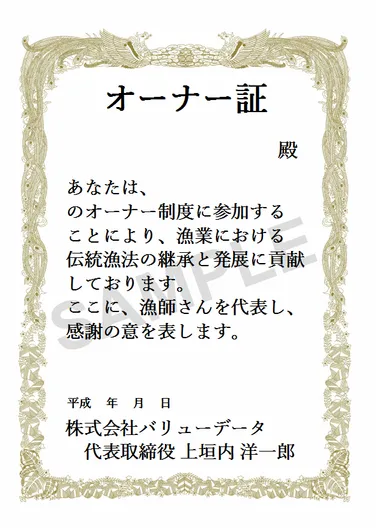 オーナー証
殿
あなたは、
のオーナー制度に参加する
ことにより、漁業における
伝統漁法の継承と発展に貢献
しております。
ここに、漁師さんを代表し、
感謝の意を表します。
SAMPLE
平成 年 月 日
株式会社バリューデータ
代表取締役 上垣内 洋一郎